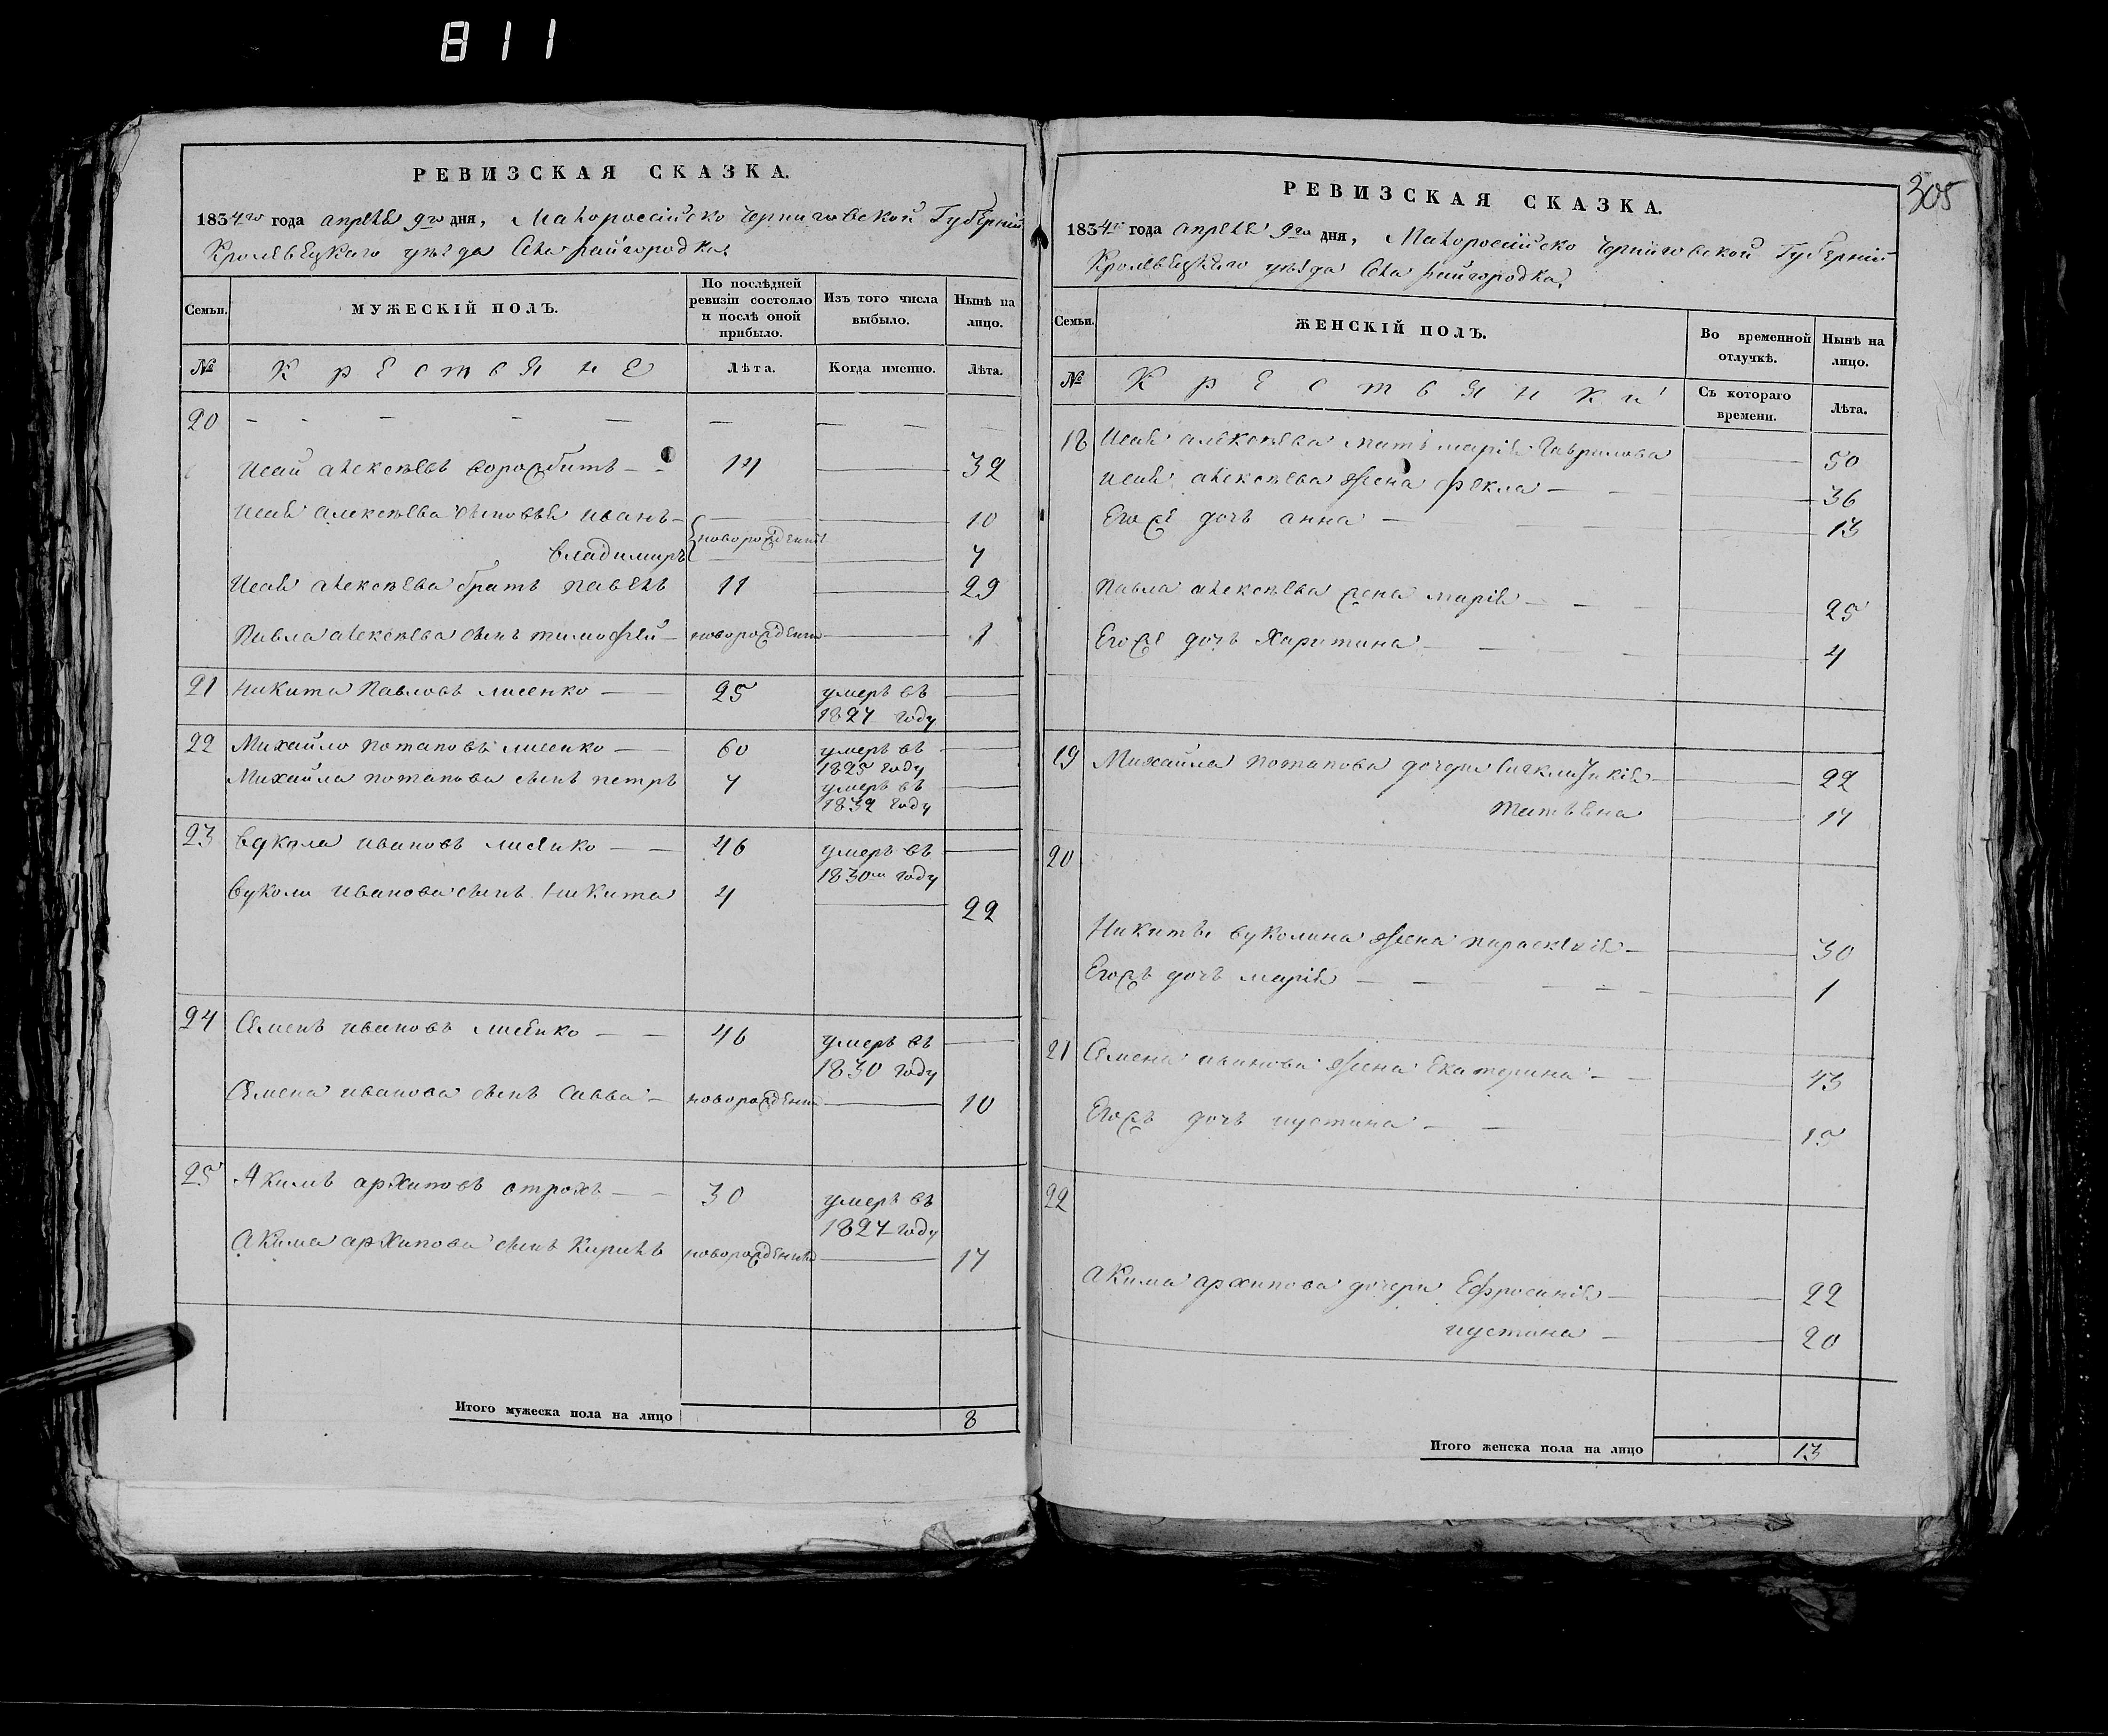 811
РЕВИЗСКАЯ СКАЗКА.
1834го года апреля 9го дня, Малоросiйско Черниговской Губернiи
Кролевецкаго уѣзда Села райгородка,
Семьи. МУЖЕСКIЙ ПОЛЪ. По послѣдней ревизiи состояло и послѣ оной прибыло. Изъ того числа выбыло. Нынѣ на лицо.
№ Крестьяне Лѣта. Когда именно. Лѣта.
20 — — — — —
Исай алексѣевъ 14 — 32
Исая алексѣева сыновья иванъ — 10
новорожденнiе
владимиръ — 7
Исая алексѣева братъ павелъ 11 — 29
Павла алексѣева сынъ тимофей — новорожденны — 1
21 Никита Павловъ лисенко — 25 умеръ въ —
1827 году
22 Михайло потаповъ лисенко — 60 умеръ въ —
1825 году
Михайла потапова сынъ петръ 7 умеръ въ —
1832 году
23 Вукола ивановъ лисенко — 46 умеръ въ —
1830м году
Вуколы иванова сынъ Никита 4 — 22
24 Семенъ ивановъ лисенко — 46 умеръ въ —
1830 году
Семена иванова сынъ Савва — новорожденны — 10
25 Якимъ архиповъ строхъ — 30 умеръ въ
1827 году
Акима архипова сынъ Кирилъ новорожденны — 17
Итого мужеска пола на лицо 8
305
РЕВИЗСКАЯ СКАЗКА.
1834го года апреля 9го дня, Малоросiйско Черниговской Губернiи
Кролевецкаго уѣзда Села райгородка,
Семьи. ЖЕНСКIЙ ПОЛЪ. Во временной отлучкѣ. Нынѣ на лицо.
№ Крестьянки Съ котораго времени. Лѣта.
18 Исая алексѣева мать марiя Гаврилова — 50
Исая алексѣева жена фекла — 36
Егоже дочь анна — 13
Павла алексѣева жена марiя — 25
Егоже дочь Харитина — 4
19 Михайла потапова дочери — 22
татьяна — 17
20
Никиты вуколина жена параскевiя — 30
Егожъ дочь марiя — 1
21 Семена иванова жена Екатерина — 43
Егожъ дочь иустина — 15
22
Акима архипова дочери Ефросинiя — 22
иустина — 20
Итого женска пола на лицо 13